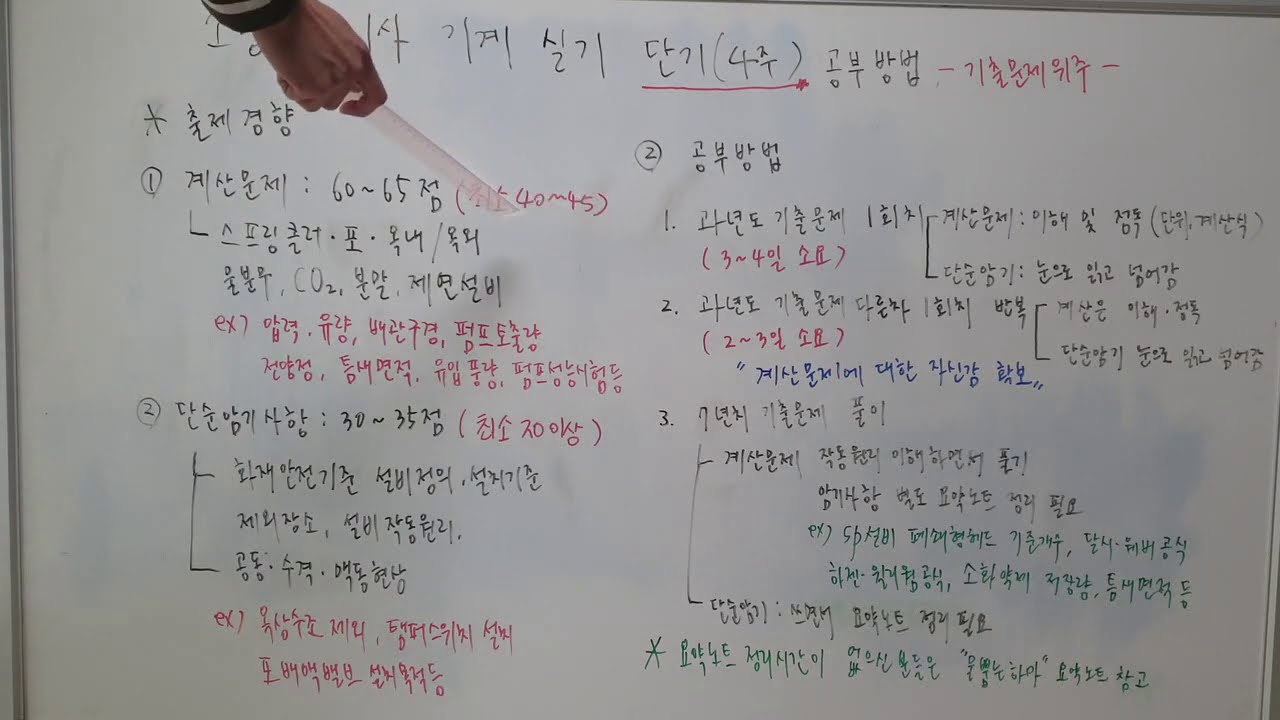 기계 실기 단기(4주) 공부방법 - 기출문제위주 -
* 출제경향
① 계산문제 : 60~65점 (최소 40~45)
스프링클러·포·옥내/옥외
물분무, CO₂, 분말, 제연설비
ex) 압력·유량, 배관구경, 펌프토출량
전양정, 틈새면적, 유입풍량, 펌프성능시험등
② 단순암기사항 : 30~35점 (최소 20이상)
화재안전기준 설비정의·설치기준
제외장소, 설비작동원리.
공동·수격·맥동현상
ex) 옥상수조 제외, 탬퍼스위치 설치
포 배액밸브 설치목적등
② 공부방법
1. 과년도 기출문제 1회치 계산문제 : 이해 및 정독 (단위, 계산식)
(3~4일 소요) 단순암기 : 눈으로 읽고 넘어감
2. 과년도 기출문제 다른차 1회치 반복 계산은 이해·정독
(2~3일 소요) 단순암기 눈으로 읽고 넘어감
"계산문제에 대한 자신감 확보"
3. 7년치 기출문제 풀이
계산문제 작동원리 이해하면서 풀기
암기사항 별도 요약노트 정리 필요
ex) SP설비 폐쇄형헤드 기준개수, 달시·웨버공식
하젠·윌리엄공식, 소화약제 저장량, 틈새면적 등
단순암기 : 쓰면서 요약노트 정리 필요
* 요약노트 정리시간이 없으신 분들은 "물뿜는하마" 요약노트 참고